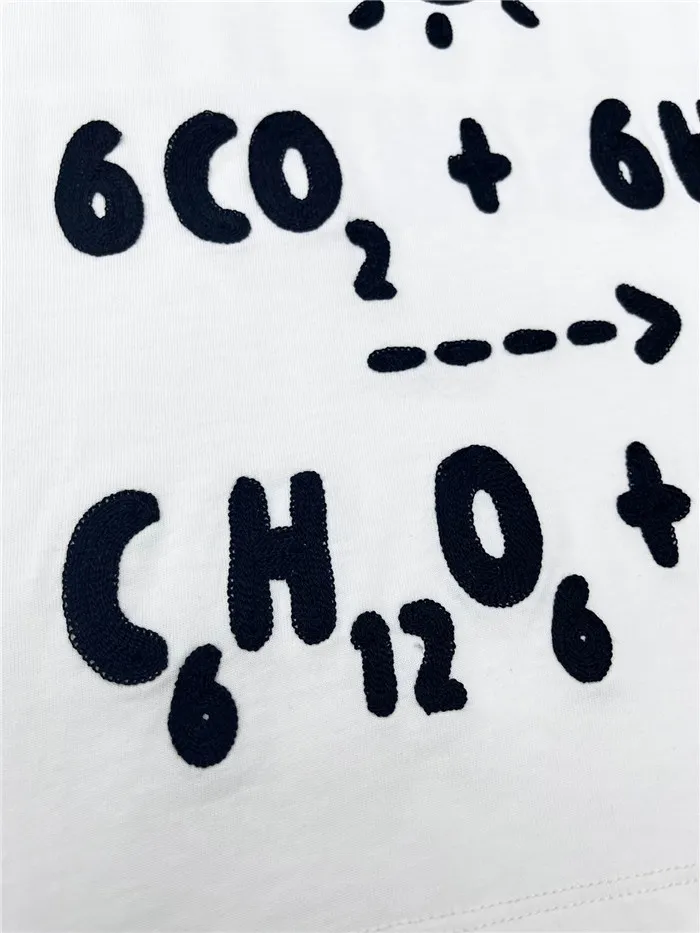 6CO₂ + 6H
---->
C₆H₁₂O₆ +